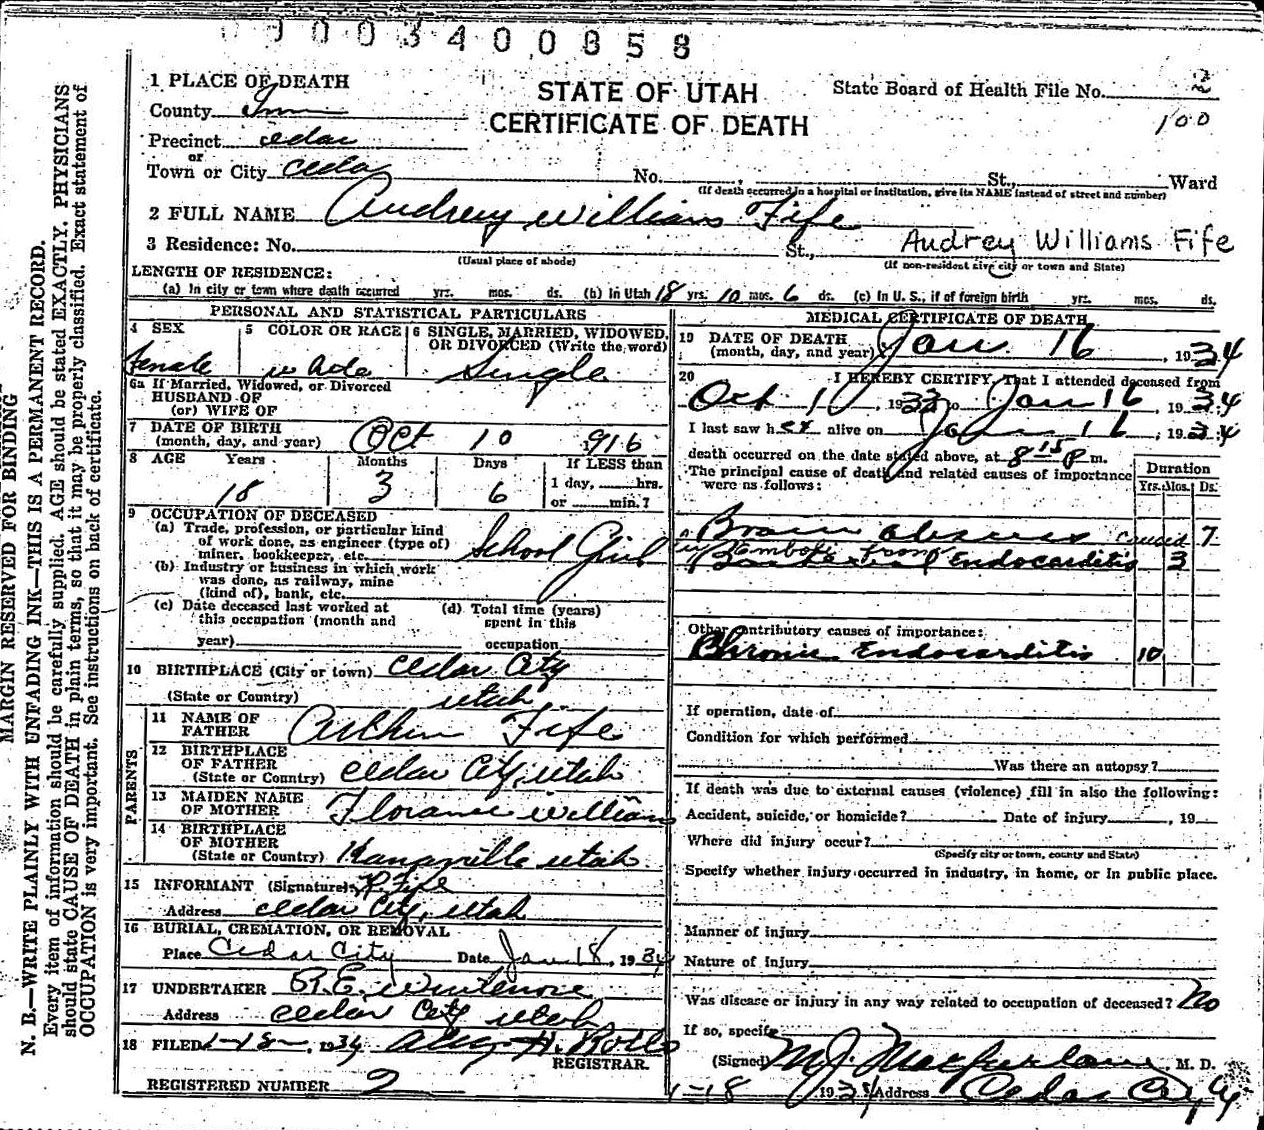 9003400858
1 PLACE OF DEATH
STATE OF UTAH
CERTIFICATE OF DEATH
State Board of Health File No. 2
100
County Iron
Precinct Cedar
or
Town or City Cedar No. , St., Ward
(If death occurred in a hospital or institution, give its NAME instead of street and number)
2 FULL NAME Audrey Williams Fife
3 Residence: No. St., Audrey Williams Fife
(Usual place of abode) (If non-resident give city or town and State)
LENGTH OF RESIDENCE:
(a) In city or town where death occurred yrs. mos. ds. (b) In Utah 18 yrs. 10 mos. 6 ds. (c) In U. S., if of foreign birth yrs. mos. ds.
PERSONAL AND STATISTICAL PARTICULARS
4 SEX Female
5 COLOR OR RACE White
6 SINGLE, MARRIED, WIDOWED, OR DIVORCED (Write the word) Single
6a If Married, Widowed, or Divorced
HUSBAND OF
(or) WIFE OF
7 DATE OF BIRTH
(month, day, and year) Oct 10 1916
8 AGE Years Months Days If LESS than
18 3 6 1 day, hrs.
or min.?
9 OCCUPATION OF DECEASED
(a) Trade, profession, or particular kind
of work done, as engineer (type of)
miner, bookkeeper, etc. School Girl
(b) Industry or business in which work
was done, as railway, mine
(kind of), bank, etc.
(c) Date deceased last worked at
this occupation (month and
year)
(d) Total time (years)
spent in this
occupation
10 BIRTHPLACE (City or town) Cedar City
(State or Country) Utah
PARENTS
11 NAME OF
FATHER Fife
12 BIRTHPLACE
OF FATHER
(State or Country) Cedar City, Utah
13 MAIDEN NAME
OF MOTHER Williams
14 BIRTHPLACE
OF MOTHER
(State or Country) Kanarville Utah
15 INFORMANT (Signature) R. Fife
Address Cedar City, Utah
16 BURIAL, CREMATION, OR REMOVAL
Place Cedar City Date Jan 18, 1934
17 UNDERTAKER
Address Cedar City Utah
18 FILED 1-18-, 1934
REGISTRAR
REGISTERED NUMBER 2
MEDICAL CERTIFICATE OF DEATH
19 DATE OF DEATH
(month, day, and year) Jan 16, 1934
20 I HEREBY CERTIFY, That I attended deceased from
Oct 1, 1933 to Jan 16, 1934
I last saw her alive on Jan 16, 1934
death occurred on the date stated above, at 8 15 P m.
The principal cause of death and related causes of importance
were as follows:
Duration
Yrs. Mos. Ds.
Brain abscess caused 7
by Emboli from
Bacterial Endocarditis 3
Other contributory causes of importance:
Chronic Endocarditis 10
If operation, date of
Condition for which performed
Was there an autopsy?
If death was due to external causes (violence) fill in also the following:
Accident, suicide, or homicide? Date of injury , 19
Where did injury occur?
(Specify city or town, county and State)
Specify whether injury occurred in industry, in home, or in public place.
Manner of injury
Nature of injury
Was disease or injury in any way related to occupation of deceased? No
If so, specify
(Signed) M. J. Macfarlane, M. D.
1-18 1934 Address Cedar City
MARGIN RESERVED FOR BINDING
N. B.—WRITE PLAINLY WITH UNFADING INK—THIS IS A PERMANENT RECORD.
Every item of information should be carefully supplied. AGE should be stated EXACTLY. PHYSICIANS
should state CAUSE OF DEATH in plain terms, so that it may be properly classified. Exact statement of
OCCUPATION is very important. See instructions on back of certificate.